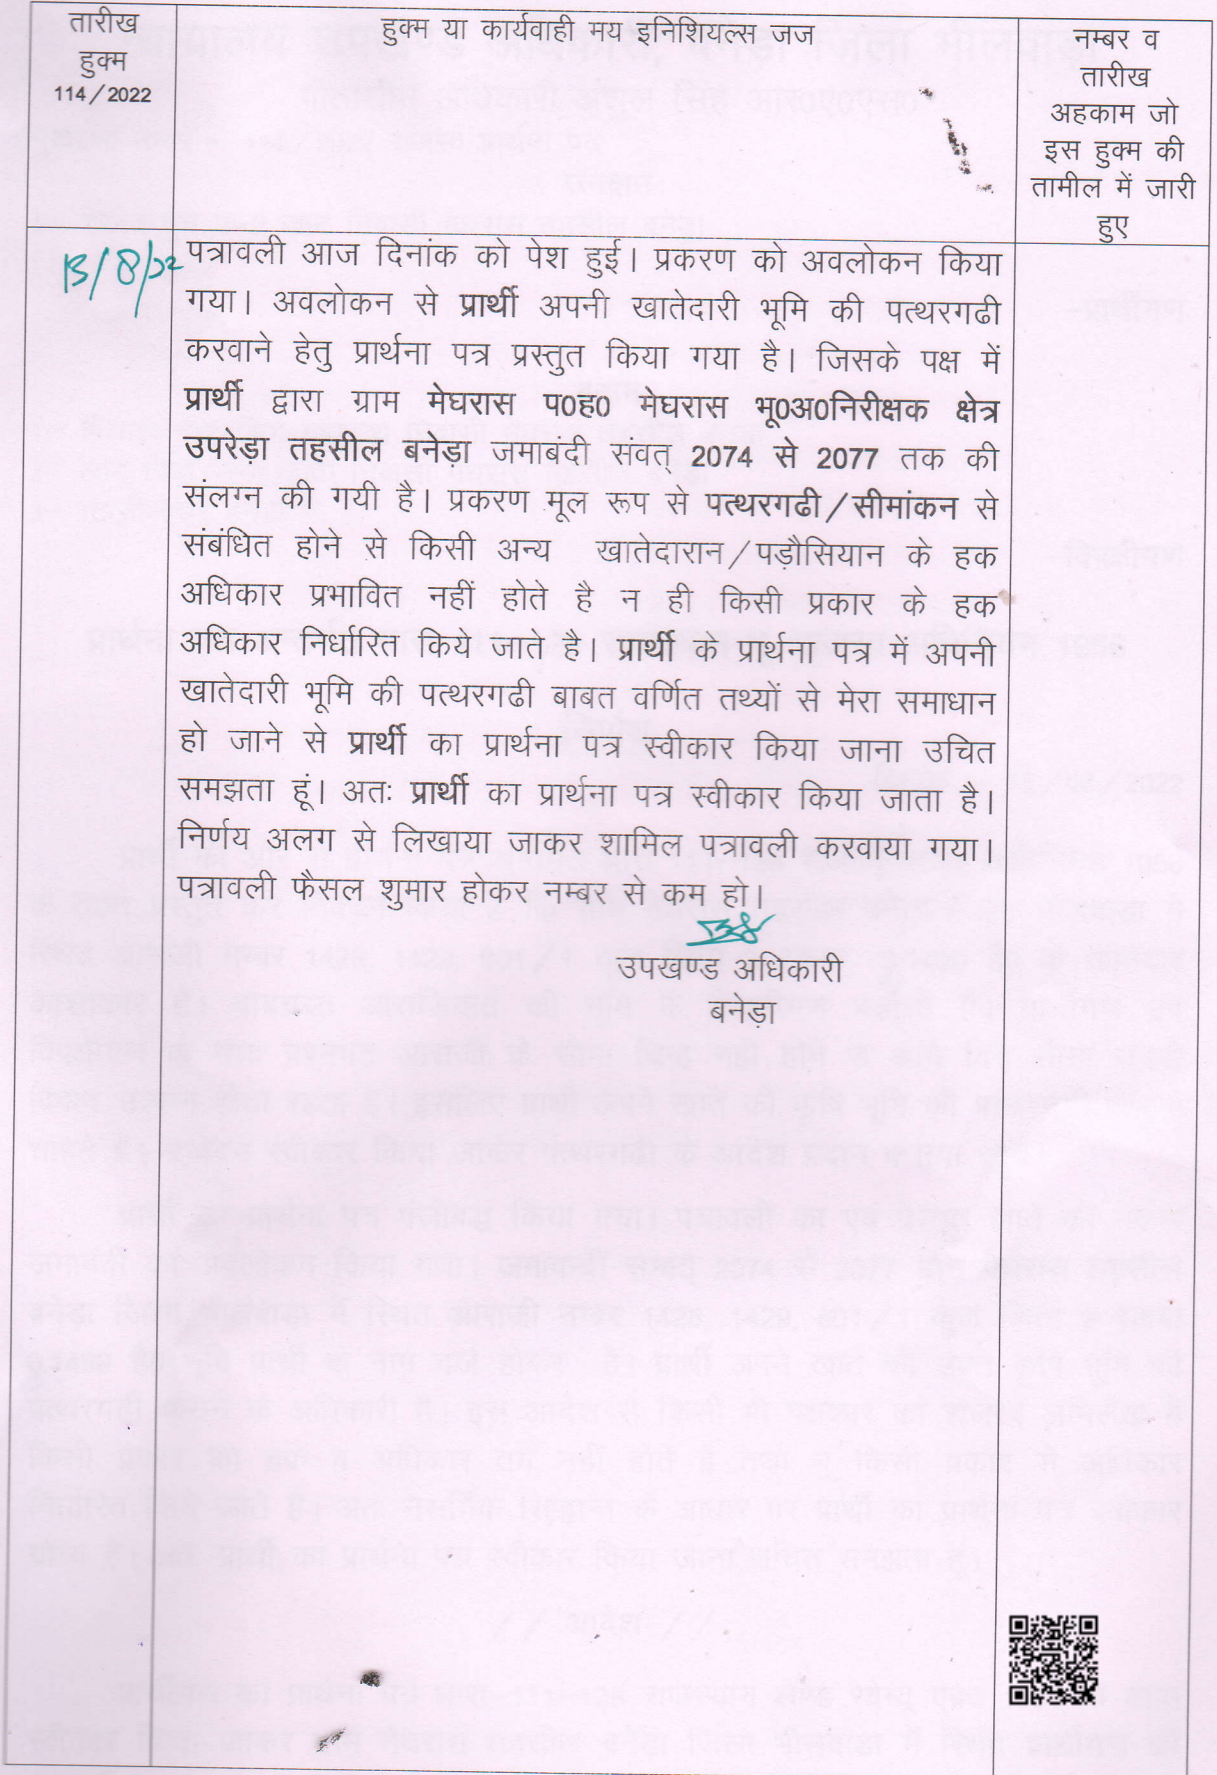 तारीख
हुक्म
114/2022
हुक्म या कार्यवाही मय इनिशियल्स जज
नम्बर व
तारीख
अहकाम जो
इस हुक्म की
तामील में जारी
हुए
13/8/22
पत्रावली आज दिनांक को पेश हुई। प्रकरण को अवलोकन किया
गया। अवलोकन से प्रार्थी अपनी खातेदारी भूमि की पत्थरगढी
करवाने हेतु प्रार्थना पत्र प्रस्तुत किया गया है। जिसके पक्ष में
प्रार्थी द्वारा ग्राम मेघरास प0ह0 मेघरास भू0अ0निरीक्षक क्षेत्र
उपरेड़ा तहसील बनेड़ा जमाबंदी संवत् 2074 से 2077 तक की
संलग्न की गयी है। प्रकरण मूल रूप से पत्थरगढी/सीमांकन से
संबंधित होने से किसी अन्य खातेदारान/पड़ौसियान के हक
अधिकार प्रभावित नहीं होते है न ही किसी प्रकार के हक
अधिकार निर्धारित किये जाते है। प्रार्थी के प्रार्थना पत्र में अपनी
खातेदारी भूमि की पत्थरगढी बाबत वर्णित तथ्यों से मेरा समाधान
हो जाने से प्रार्थी का प्रार्थना पत्र स्वीकार किया जाना उचित
समझता हूं। अतः प्रार्थी का प्रार्थना पत्र स्वीकार किया जाता है।
निर्णय अलग से लिखाया जाकर शामिल पत्रावली करवाया गया।
पत्रावली फैसल शुमार होकर नम्बर से कम हो।
उपखण्ड अधिकारी
बनेड़ा